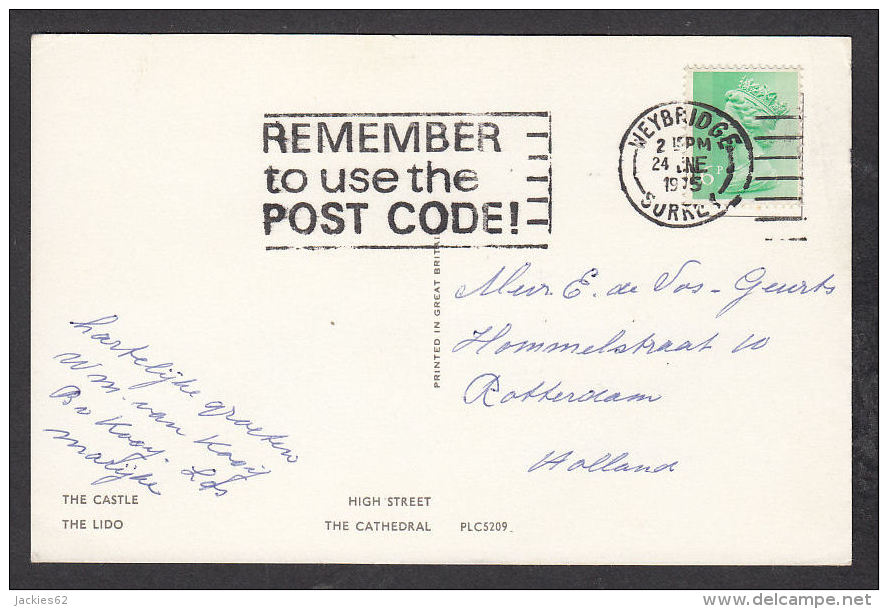 REMEMBER
to use the
POST CODE!
WEYBRIDGE
2 15PM
24 JNE
1975
SURREY
P
PRINTED IN GREAT BRITAIN
Mevr. E. de Vos-Geurts
Hommelstraat 10
Rotterdam
Holland
hartelijke groeten
Wm. van Kooij
Bv Kooij-
Marijke
THE CASTLE
HIGH STREET
THE LIDO
THE CATHEDRAL PLC5209
jackies62
delcampe.net